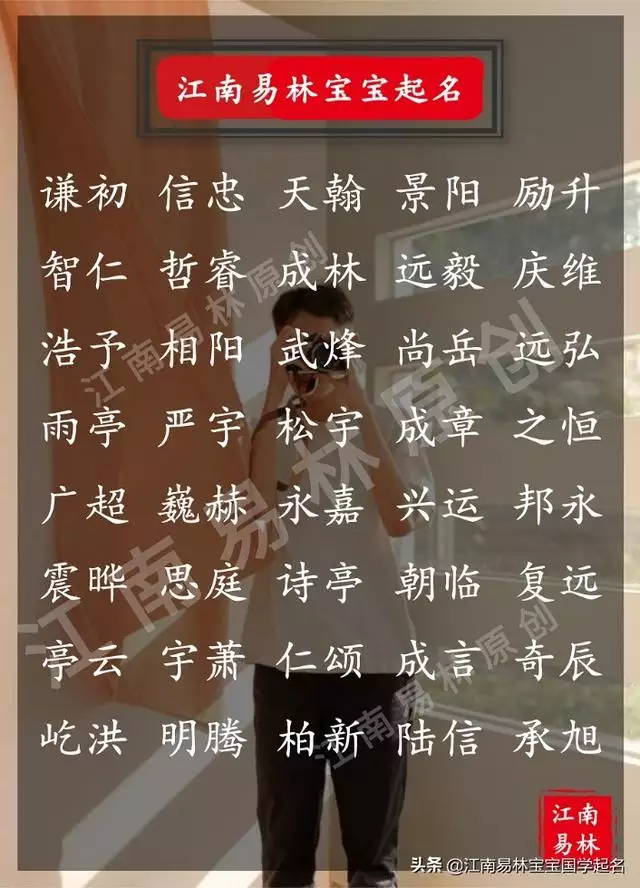 江南易林宝宝起名
谦初 信忠 天翰 景阳 励升
智仁 哲睿 成林 远毅 庆维
浩予 相阳 武烽 尚岳 远弘
雨亭 严宇 松宇 成章 之恒
广超 巍赫 永嘉 兴运 邦永
震晔 思庭 诗亭 朝临 复远
亭云 宇萧 仁颂 成言 奇辰
屹洪 明腾 柏新 陆信 承旭
江南易林原创
江南易林原创
江南易林原创
江南
易林
头条 @江南易林宝宝国学起名